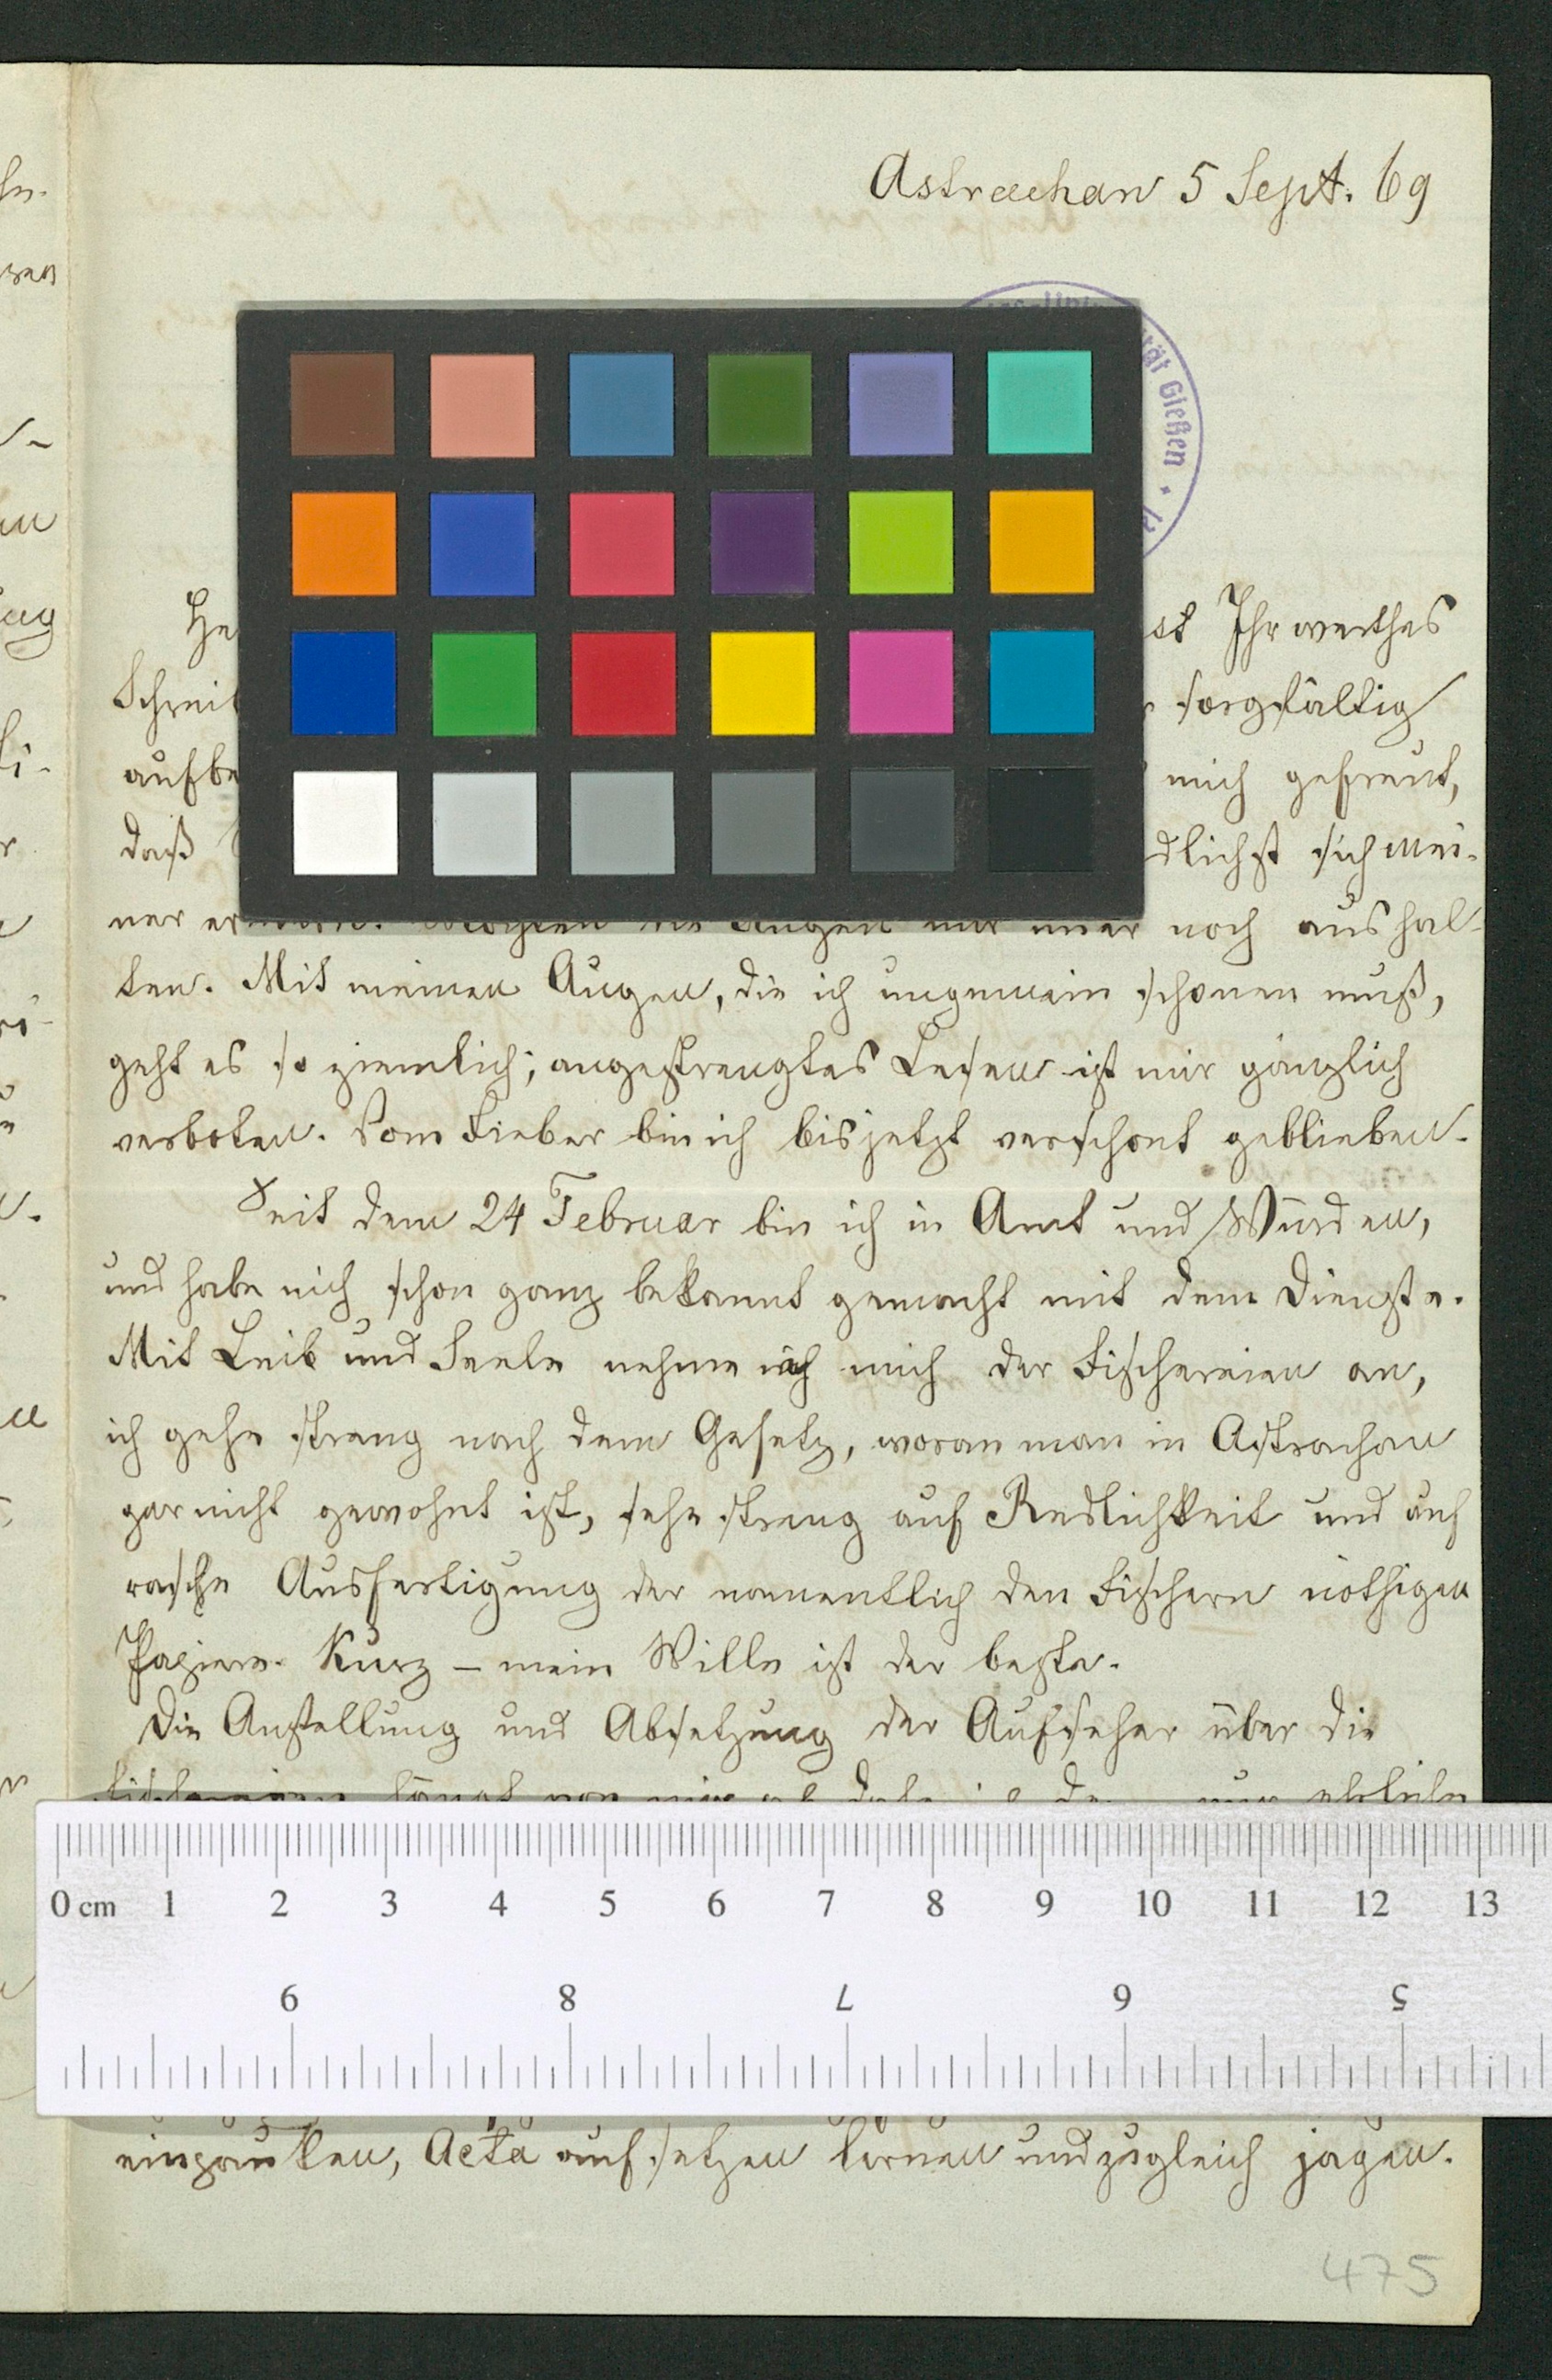 Astrachan 5 Sept. 69
Gießen
Ihr werthes
sorgfältig
mich gefreut,
daß dlichst sich mei-
ner noch aushal-
ten. Mit meinen Augen, die ich ungemein schonen muß,
geht es so ziemlich; angestrengtes Lesen ist mir gänzlich
verboten. Vom Fieber bin ich bis jetzt verschont geblieben.
Seit dem 24 Februar bin ich in Amt und Würden,
und habe mich schon ganz bekannt gemacht mit dem Dienste.
Mit Leib und Seele nehme ich mich der Fischereien an,
ich gehe streng nach dem Gesetz, woran man in Astrachan
gar nicht gewohnt ist, sehe streng auf Redlichkeit und auf
rasche Ausfertigung der namentlich den Fischern nöthigen
Papiere. Kurz – mein Wille ist der beste.
Die Anstellung und Absetzung der Aufseher über die
0 cm 1 2 3 4 5 6 7 8 9 10 11 12 13
9 8 7 6 5
einpauken, Acta aufsetzen lernen und zugleich jagen.
475